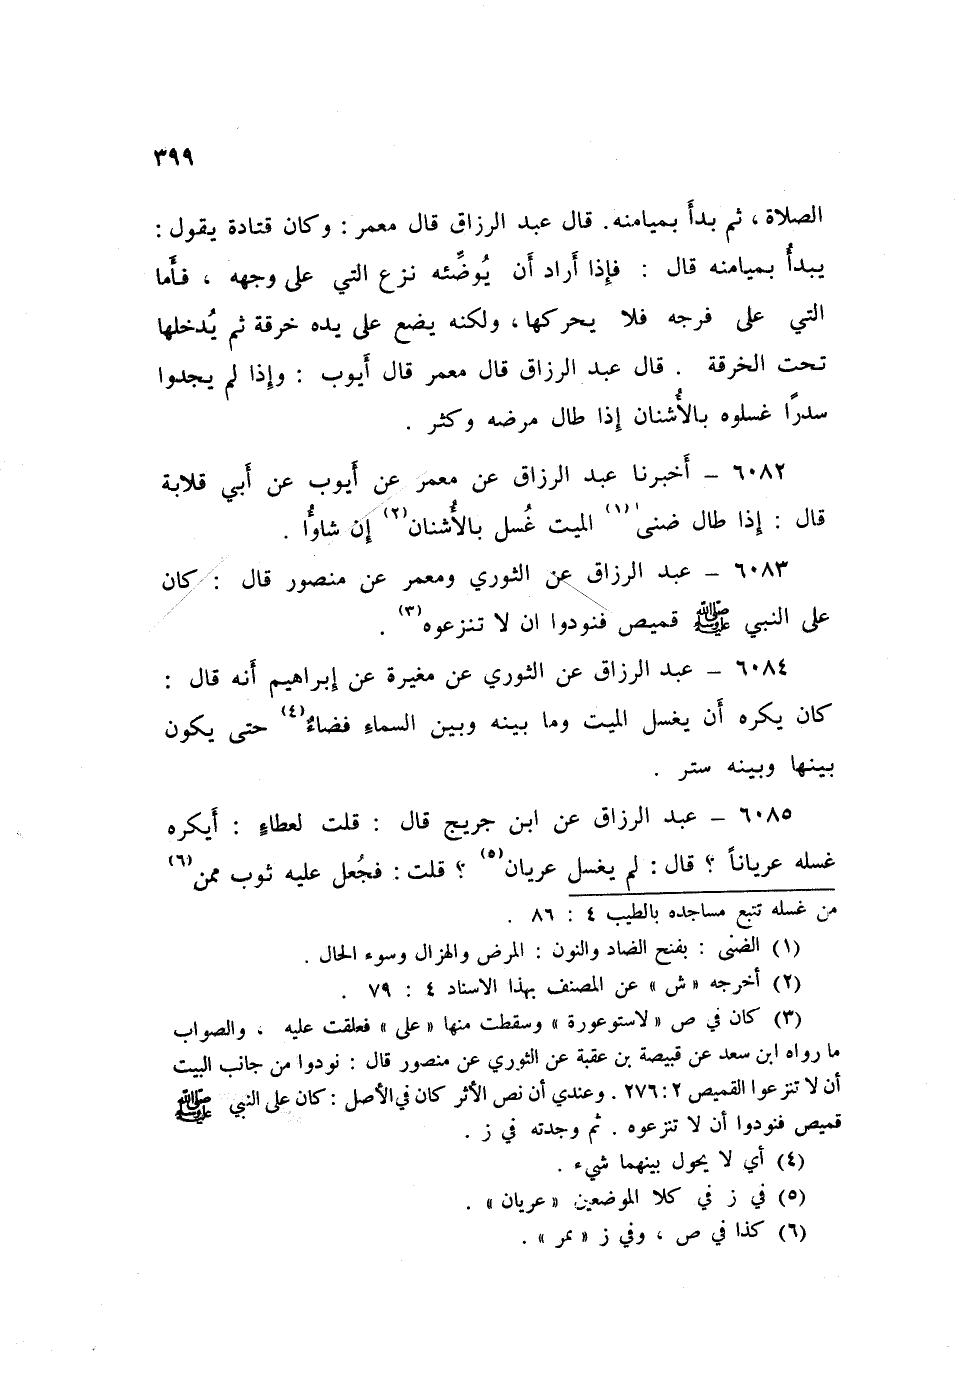 ٣٩٩
الصلاة ، ثم بدأ بميامنه. قال عبد الرزاق قال معمر : وكان قتادة يقول :
يبدأُ بميامنه قال : فإذا أراد أن يُوضِّئه نزع التي على وجهه ، فأَما
التي على فرجه فلا يحركها ، ولكنه يضع على يده خرقة ثم يُدخلها
تحت الخرقة . قال عبد الرزاق قال معمر قال أيوب : وإذا لم يجدوا
سدرًا غسلوه بالأُشنان إذا طال مرضه وكثر .
٦٠٨٢ – أخبرنا عبد الرزاق عن معمر عن أيوب عن أبي قلابة
قال : إذا طال ضنى(١) الميت غُسل بالأُشنان(٢) إن شاوُّا .
٦٠٨٣ – عبد الرزاق عن الثوري ومعمر عن منصور قال : كان
على النبي ﷺ قميص فنودوا ان لا تنزعوه(٣) .
٦٠٨٤ – عبد الرزاق عن الثوري عن مغيرة عن إبراهيم أنه قال :
كان يكره أن يغسل الميت وما بينه وبين السماءِ فضاءٌ(٤) حتى يكون
بينها وبينه ستر .
٦٠٨٥ – عبد الرزاق عن ابن جريج قال : قلت لعطاءٍ : أيكره
غسله عرياناً ؟ قال : لم يغسل عريان(٥) ؟ قلت : فجُعل عليه ثوب ممن(٦)
من غسله تتبع مساجده بالطيب ٤ : ٨٦ .
(١) الضنى : بفتح الضاد والنون : المرض والهزال وسوء الحال .
(٢) أخرجه «ش» عن المصنف بهذا الاسناد ٤ : ٧٩ .
(٣) كان في ص «لاستوعورة» وسقطت منها «على» فعلقت عليه ، والصواب
ما رواه ابن سعد عن قبيصة بن عقبة عن الثوري عن منصور قال : نودوا من جانب البيت
أن لا تنزعوا القميص ٢ : ٢٧٦ . وعندي أن نص الأثر كان في الأصل : كان على النبي ﷺ
قميص فنودوا أن لا تنزعوه . ثم وجدته في ز .
(٤) أي لا يحول بينهما شيء .
(٥) في ز في كلا الموضعين «عريان» .
(٦) كذا في ص ، وفي ز «ممر» .